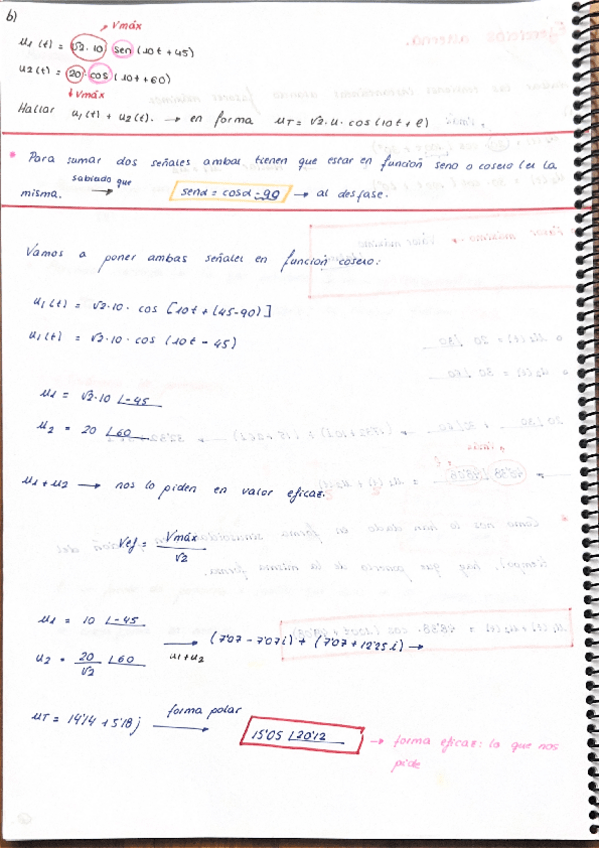 b)
Vmáx
u1(t) = √2·10 · sen (10t + 45)
u2(t) = 20 · cos (10t + 60)
Vmáx
Hallar u1(t) + u2(t). → en forma uT = √2·u·cos(10t + φ)
* Para sumar dos señales ambas tienen que estar en función seno o coseno (es la
misma. sabiendo que → senα = cosα - 90 → al desfase.
Vamos a poner ambas señales en función coseno:
u1(t) = √2·10· cos [10t + (45-90)]
u1(t) = √2·10· cos (10t - 45)
u1 = √2·10 ∠-45
u2 = 20 ∠60
u1 + u2 → nos lo piden en valor eficaz.
Vef = Vmáx / √2
u1 = 10 ∠-45
u2 = 20/√2 ∠60 → u1+u2 (7'07 - 7'07i) + (7'07 + 12'25i) →
uT = 14'14 + 5'18j → forma polar 15'05 ∠20'12 → forma eficaz: lo que nos
pide